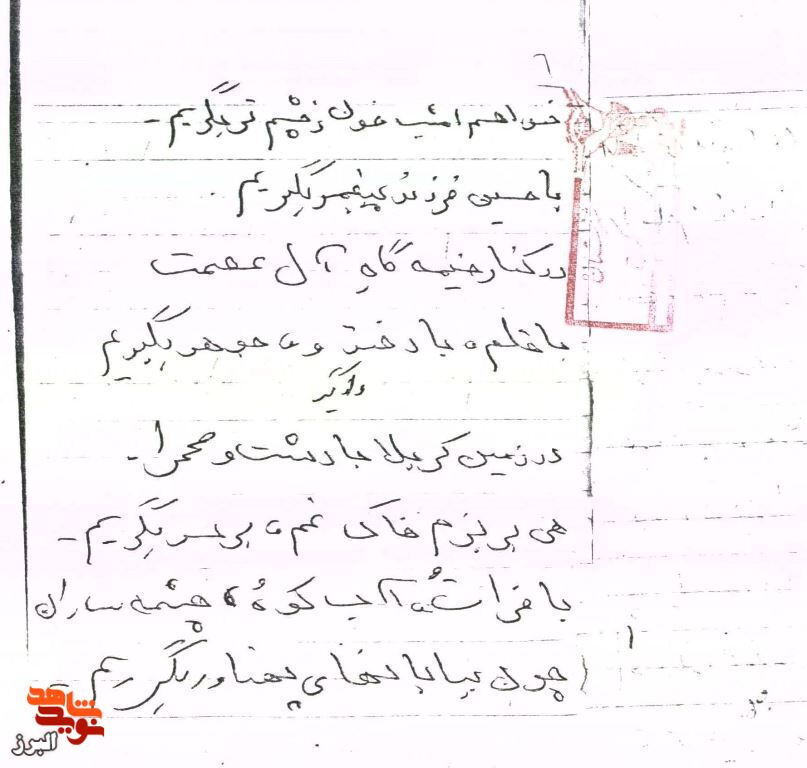 ٦
خواهم امشب خون ز چشم تر بگریم -
با حسین فرزند پیغمبر بگریم
در کنار خیمه گاهِ آل عصمت
با قلم، با دفتر و، جوهر بگریم
واگیر
در زمین کربلا با دشت و صحرا -
هی بریزم خاک غم، بر سر بگریم -
با فرات و، آب کوه و، چشمه ساران
چون بیابانهای پهناور بگریم -
۱
شاهد
نوید
البرز